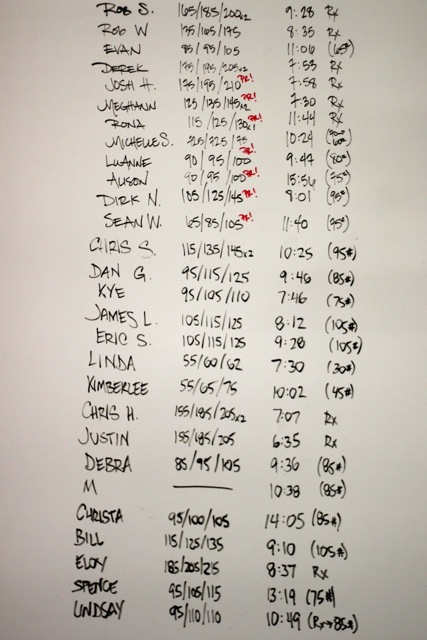 ROB S. 165/185/200x2 9:28 Rx
ROB W 135/165/175 8:35 Rx
EVAN 85/95/105 11:06 (65#)
DEREK 175/195/205x2 7:53 Rx
JOSH H. 175/195/210 PR! 7:58 Rx
MEGHANN 125/135/145x2 PR! 7:30 Rx
RONA 115/125/130x1 PR! 11:44 Rx
MICHELLE S. 10:24
LUANNE 90/95/100 PR! 9:47 (80#)
ALISON 90/95/100 PR! 15:56 (75#)
DIRK N. 105/125/145 PR! 8:01 (95#)
SEAN W. 65/85/105 PR! 11:40 (75#)
CHRIS S. 115/135/145x2 10:25 (95#)
DAN G. 95/115/125 9:46 (85#)
KYE 95/105/110 7:46 (75#)
JAMES L. 105/115/125 8:12 (105#)
ERIC S. 105/115/125 9:28 (105#)
LINDA 55/60/62 7:30 (30#)
KIMBERLEE 55/65/75 10:02 (45#)
CHRIS H. 155/185/205x2 7:07 Rx
JUSTIN 155/185/205 6:35 Rx
DEBRA 85/95/105 9:36 (85#)
M —— 10:38 (85#)
CHRISTA 95/100/105 14:05 (85#)
BILL 115/125/135 9:10 (105#)
ELOY 185/205/215 8:37 Rx
SPENCE 95/105/115 13:19 (75#)
LINDSAY 95/110/110 10:49 (Rx→85#)